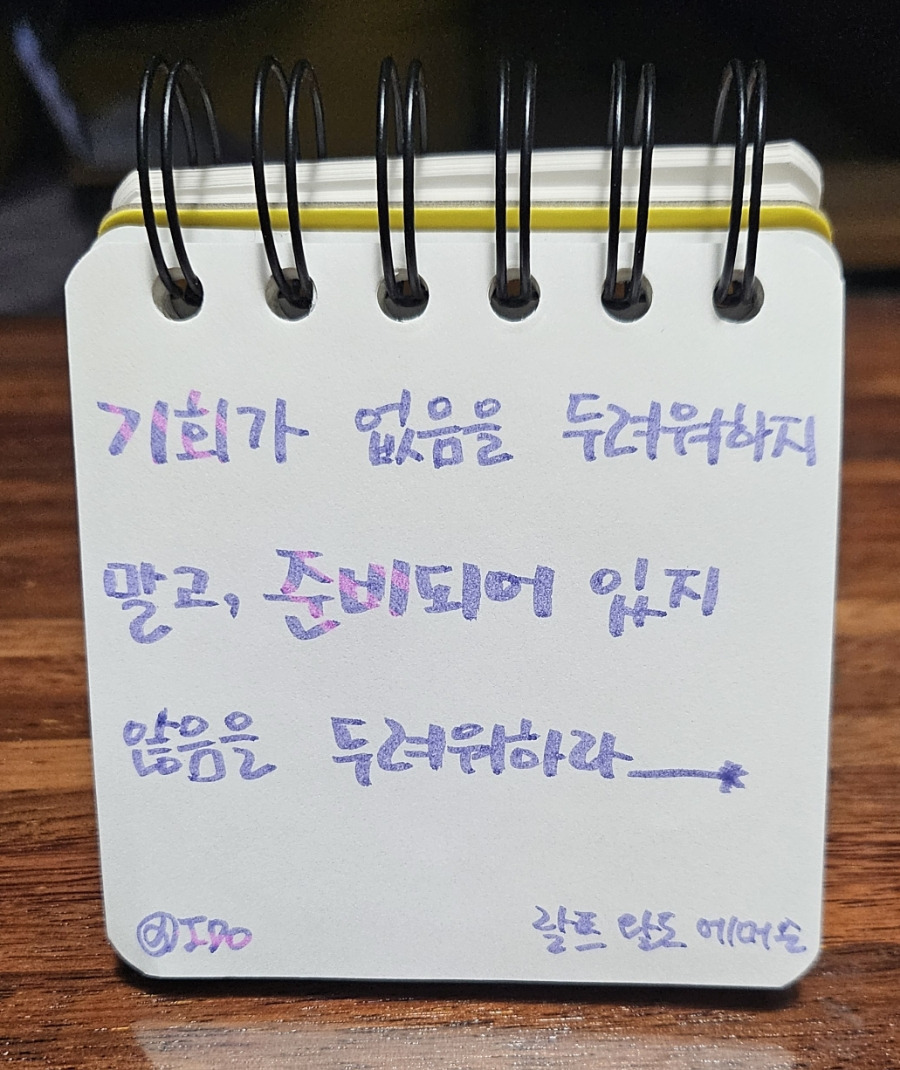 기회가 없음을 두려워하지
말고, 준비되어 있지
않음을 두려워하라
IDO
랄프 왈도 에머슨